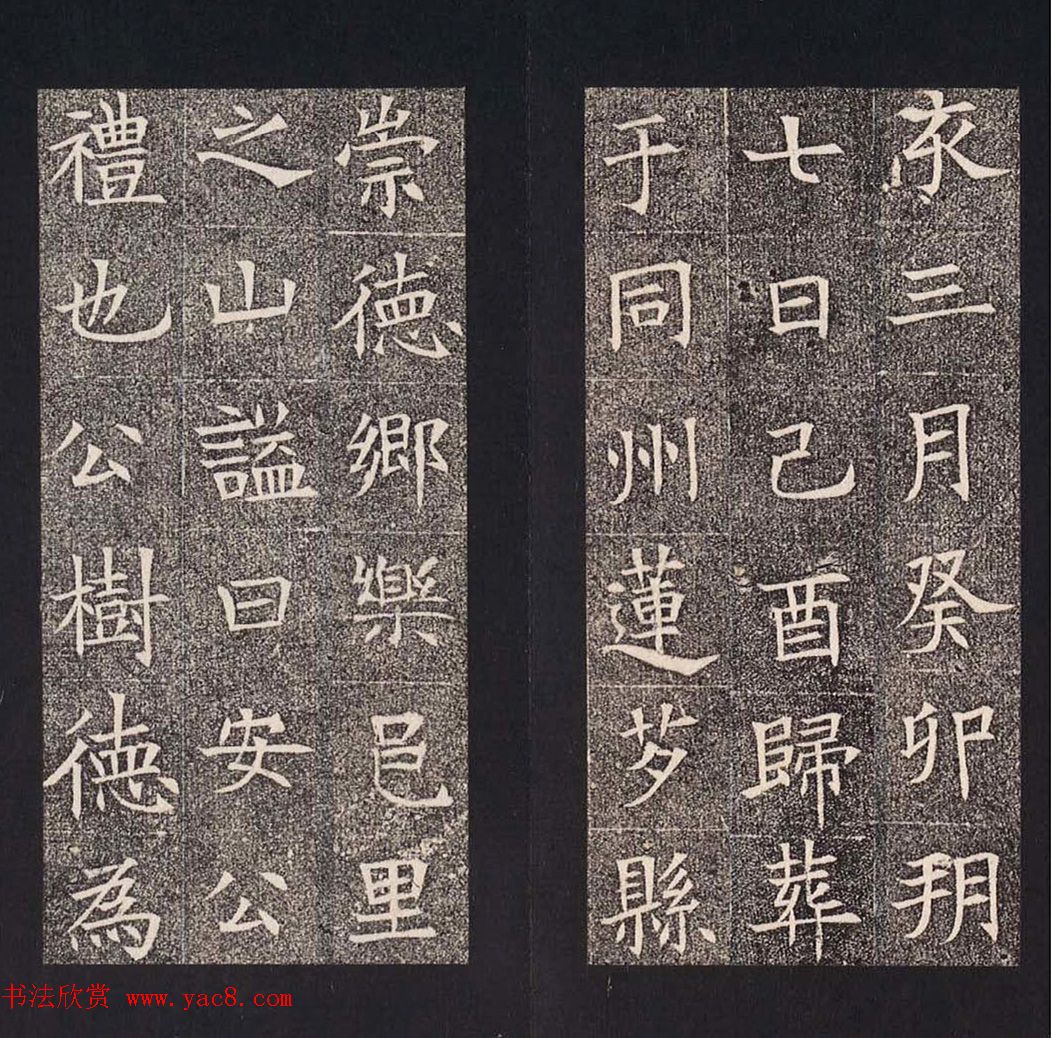 亥三月癸卯朔
七日己酉歸葬
于同州蓮芍縣
崇德鄉樂邑里
之山謚曰安公
禮也公樹德為
书法欣赏 www.yac8.com